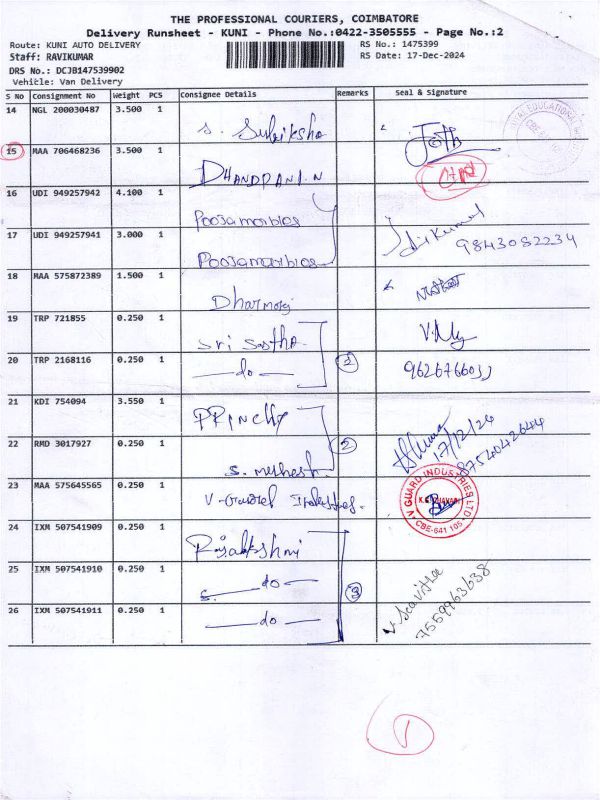 THE PROFESSIONAL COURIERS, COIMBATORE
Delivery Runsheet - KUNI - Phone No.:0422-3505555 - Page No.:2
Route: KUNI AUTO DELIVERY
RS No.: 1475399
Staff: RAVIKUMAR
RS Date: 17-Dec-2024
DRS No.: DCJB147539902
Vehicle: Van Delivery
S No Consignment No Weight PCS Consignee Details Remarks Seal & Signature
14 NGL 200030487 3.500 1
15 MAA 706468236 3.500 1 DHANDPANI.N
16 UDI 949257942 4.100 1 Poojamarbles
17 UDI 949257941 3.000 1 Poojamarbles 9843082234
18 MAA 575872389 1.500 1
19 TRP 721855 0.250 1 Sri Sastha
20 TRP 2168116 0.250 1 do 2
21 KDI 754094 3.550 1 17/12/24
22 RMD 3017927 0.250 1 2 8754042644
23 MAA 575645565 0.250 1 V-Guard Industries.
V-GUARD INDUSTRIES LTD CBE-641 105
24 IXM 507541909 0.250 1
25 IXM 507541910 0.250 1 do 3
26 IXM 507541911 0.250 1 do 7559963638
1